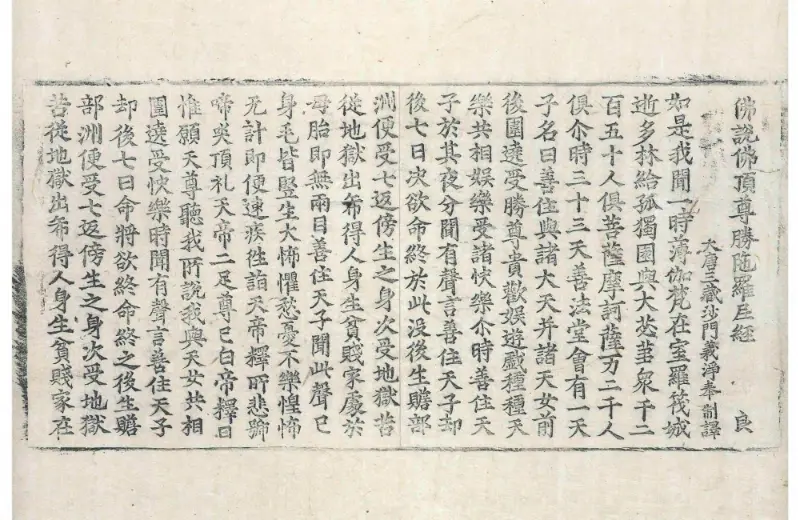 佛說佛頂尊勝陁羅尼經 良
大唐三藏沙門義淨奉制譯
如是我聞一時薄伽梵在室羅筏城
逝多林給孤獨園與大苾蒭衆千二
百五十人俱菩薩摩訶薩万二千人
俱尒時三十三天善法堂會有一天
子名曰善住與諸大天并諸天女前
後圍遶受勝尊貴歡娛遊戲種種天
樂共相娛樂受諸快樂尒時善住天
子於其夜分聞有聲言善住天子却
後七日决欲命終於此没後生贍部
洲便受七返傍生之身次受地獄苦
從地獄出希得人身生貧賤家處於
母胎即無兩目善住天子聞此聲已
身毛皆竪生大怖懼愁憂不樂惶怖
无計即便速疾往詣天帝釋所悲號
啼哭頂礼天帝二足尊已白帝釋曰
惟願天尊聽我所說我與天女共相
圍遶受快樂時聞有聲言善住天子
却後七日命將欲終命終之後生贍
部洲便受七返傍生之身次受地獄
苦從地獄出希得人身生貧賤家在